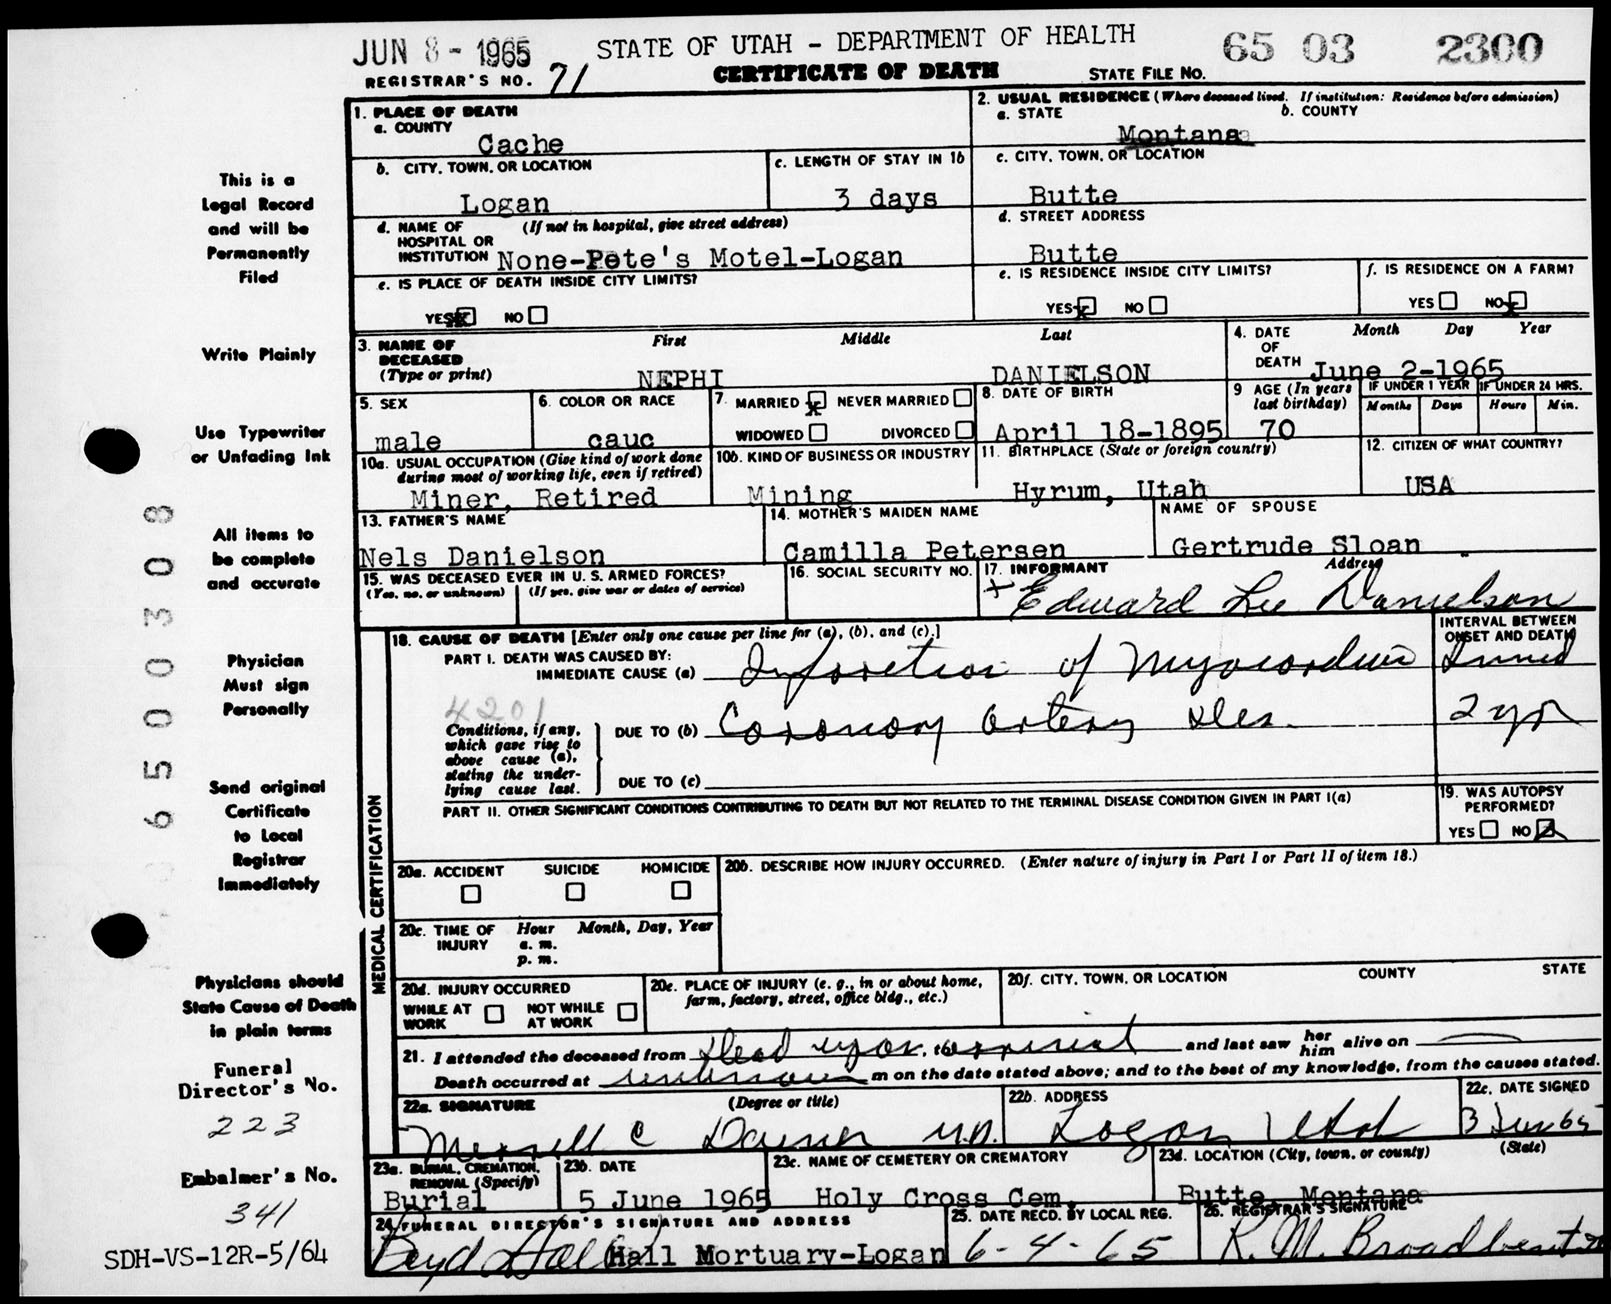 JUN 8 - 1965 STATE OF UTAH - DEPARTMENT OF HEALTH 65 03 2300
REGISTRAR'S NO. 71 CERTIFICATE OF DEATH STATE FILE NO.
1. PLACE OF DEATH
a. COUNTY
Cache
2. USUAL RESIDENCE (Where deceased lived. If institution: Residence before admission)
a. STATE b. COUNTY
Montana
b. CITY, TOWN, OR LOCATION
Logan
c. LENGTH OF STAY IN 1b
3 days
c. CITY, TOWN, OR LOCATION
Butte
d. NAME OF (If not in hospital, give street address)
HOSPITAL OR
INSTITUTION None-Pete's Motel-Logan
d. STREET ADDRESS
Butte
e. IS PLACE OF DEATH INSIDE CITY LIMITS?
YES X NO
e. IS RESIDENCE INSIDE CITY LIMITS?
YES X NO
f. IS RESIDENCE ON A FARM?
YES NO X
3. NAME OF First Middle Last
DECEASED
(Type or print) NEPHI DANIELSON
4. DATE Month Day Year
OF
DEATH June 2-1965
5. SEX
male
6. COLOR OR RACE
cauc
7. MARRIED X NEVER MARRIED
WIDOWED DIVORCED
8. DATE OF BIRTH
April 18-1895
9 AGE (In years
last birthday)
70
IF UNDER 1 YEAR
Months Days
IF UNDER 24 HRS.
Hours Min.
10a. USUAL OCCUPATION (Give kind of work done
during most of working life, even if retired)
Miner, Retired
10b. KIND OF BUSINESS OR INDUSTRY
Mining
11. BIRTHPLACE (State or foreign country)
Hyrum, Utah
12. CITIZEN OF WHAT COUNTRY?
USA
13. FATHER'S NAME
Nels Danielson
14. MOTHER'S MAIDEN NAME
Camilla Petersen
NAME OF SPOUSE
Gertrude Sloan
15. WAS DECEASED EVER IN U.S. ARMED FORCES?
(Yes, no, or unknown) (If yes, give war or dates of service)
16. SOCIAL SECURITY NO.
17. INFORMANT Address
x Edward Lee Danielson
MEDICAL CERTIFICATION
18. CAUSE OF DEATH [Enter only one cause per line for (a), (b), and (c).]
INTERVAL BETWEEN
ONSET AND DEATH
PART I. DEATH WAS CAUSED BY:
IMMEDIATE CAUSE (a) Infarction of Myocardium
4201
Conditions, if any,
which gave rise to
above cause (a),
stating the under-
lying cause last.
DUE TO (b) Coronary artery dis. 2 yr
DUE TO (c)
PART II. OTHER SIGNIFICANT CONDITIONS CONTRIBUTING TO DEATH BUT NOT RELATED TO THE TERMINAL DISEASE CONDITION GIVEN IN PART I(a)
19. WAS AUTOPSY
PERFORMED?
YES NO X
20a. ACCIDENT SUICIDE HOMICIDE
20b. DESCRIBE HOW INJURY OCCURRED. (Enter nature of injury in Part I or Part II of item 18.)
20c. TIME OF Hour Month, Day, Year
INJURY a. m.
p. m.
20d. INJURY OCCURRED
WHILE AT NOT WHILE
WORK AT WORK
20e. PLACE OF INJURY (e. g., in or about home,
farm, factory, street, office bldg., etc.)
20f. CITY, TOWN, OR LOCATION COUNTY STATE
21. I attended the deceased from Dead upon, to arrival and last saw her him alive on
Death occurred at unknown m on the date stated above; and to the best of my knowledge, from the causes stated.
22a. SIGNATURE (Degree or title)
Merrill C Daines M.D.
22b. ADDRESS
Logan Utah
22c. DATE SIGNED
3 Jun 65
23a. BURIAL, CREMATION,
REMOVAL (Specify)
Burial
23b. DATE
5 June 1965
23c. NAME OF CEMETERY OR CREMATORY
Holy Cross Cem.
23d. LOCATION (City, town, or county) (State)
Butte, Montana
24. FUNERAL DIRECTOR'S SIGNATURE AND ADDRESS
Boyd Hall Hall Mortuary-Logan
25. DATE RECD. BY LOCAL REG.
6-4-65
26. REGISTRAR'S SIGNATURE
R. M. Broadbent
This is a
Legal Record
and will be
Permanently
Filed
Write Plainly
Use Typewriter
or Unfading Ink
All items to
be complete
and accurate
Physician
Must sign
Personally
Send original
Certificate
to Local
Registrar
Immediately
Physicians should
State Cause of Death
in plain terms
Funeral
Director's No.
223
Embalmer's No.
341
SDH-VS-12R-5/64
6500308